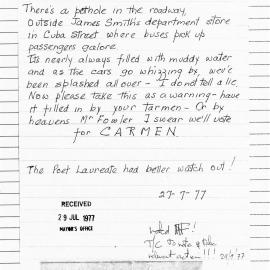 There's a pothole in the roadway,
Outside James Smith's department store
in Cuba Street where buses pick up
passengers galore.
Its nearly always filled with muddy water
and as the cars go whizzing by, we've
been splashed all over - I do not tell a lie.
Now please take this as a warning - have
it filled in by your Tarmen - Or by
heavens Mr Fowler I swear we'll vote
for CARMEN
The Poet Laureate had better watch out!
27-7-77
RECEIVED
29 JUL 1977
MAYOR'S OFFICE
T/C
action!!!